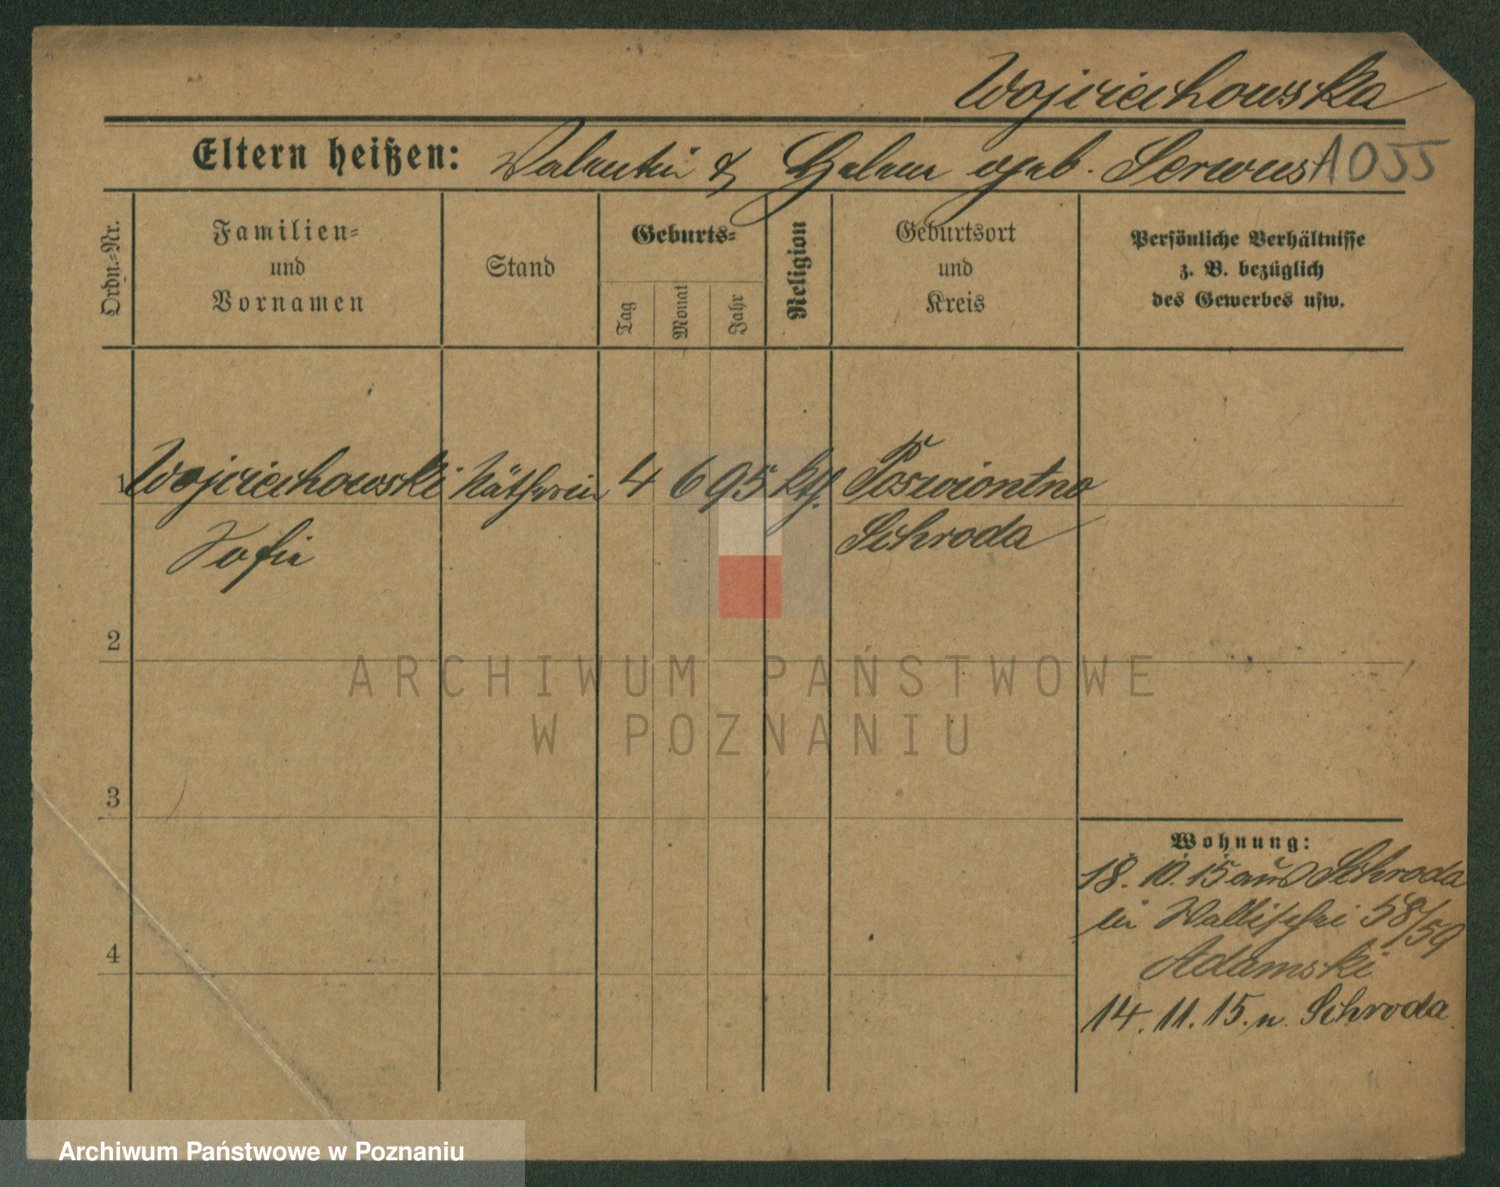 Wojciechowska
Eltern heißen: Valentin & Helene geb. Serwus 1055
Ordn.-Nr.
Familien-
und
Vornamen
Stand
Geburts-
Tag
Monat
Jahr
Religion
Geburtsort
und
Kreis
Persönliche Verhältnisse
z. B. bezüglich
des Gewerbes usw.
1 Wojciechowski Nätherin 4 6 95 kth. Poswiontno
Sofie Schroda
2
ARCHIWUM PAŃSTWOWE
W POZNANIU
3
Wohnung:
18. 10. 15 aus Schroda
in Wallischei 58/59
Adamski
4
14. 11. 15. n. Schroda
Archiwum Państwowe w Poznaniu